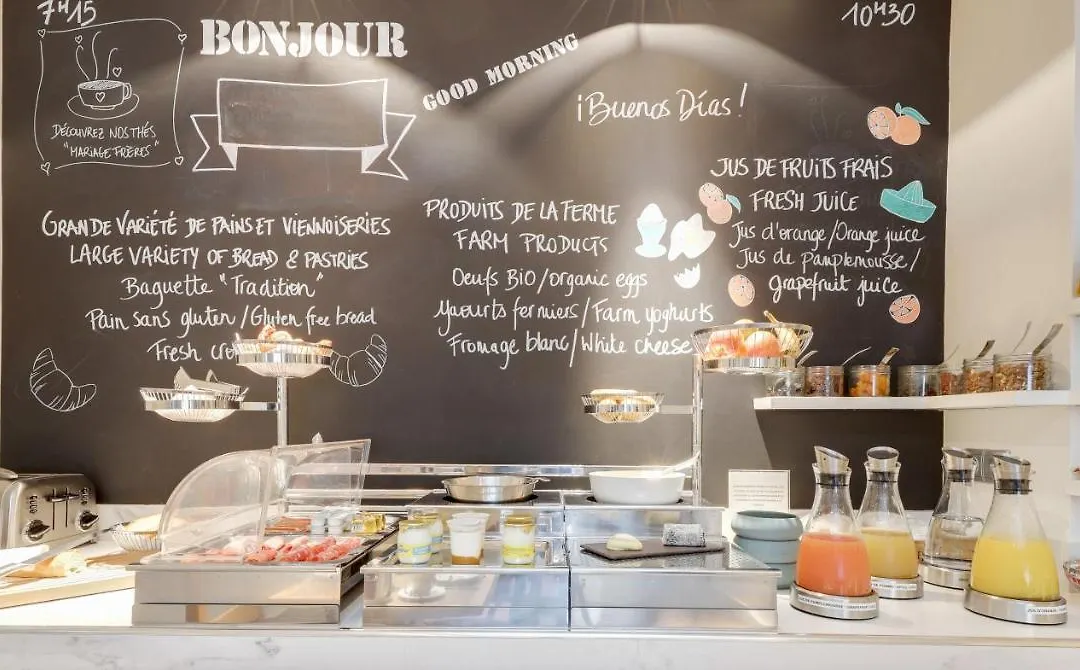 7H15
10H30
BONJOUR
GOOD MORNING
¡Buenos Días!
DÉCOUVREZ NOS THÉS
"MARIAGE FRÈRES"
GRANDE VARIÉTÉ DE PAINS ET VIENNOISERIES
LARGE VARIETY OF BREAD & PASTRIES
Baguette "Tradition"
Pain sans gluten / Gluten free bread
Fresh
PRODUITS DE LA FERME
FARM PRODUCTS
Oeufs BIO / organic eggs
Yaourts fermiers / Farm yoghurts
Fromage blanc / White cheese
JUS DE FRUITS FRAIS
FRESH JUICE
Jus d'orange / Orange juice
Jus de pamplemousse /
grapefruit juice